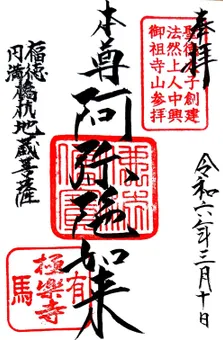 奉拝
聖徳太子創建
法然上人中興
御祖寺山参拝
令和六年三月十日
本尊阿弥陀如来
福徳円満橋杭地蔵菩薩
有馬
極樂寺